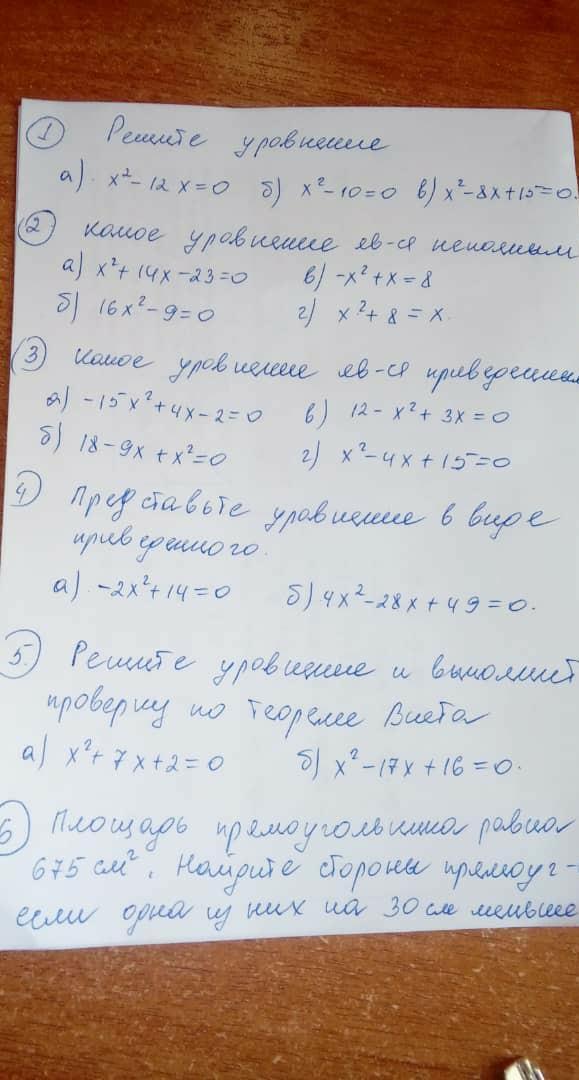 1 Решите уравнение
а) x²-12x=0 б) x²-10=0 в) x²-8x+15=0.
2 Какое уравнение яв-ся неполным
а) x²+14x-23=0 в) -x²+x=8
б) 16x²-9=0 г) x²+8=x.
3 Какое уравнение яв-ся приведенным
а) -15x²+4x-2=0 в) 12-x²+3x=0
б) 18-9x+x²=0 г) x²-4x+15=0
4 Представьте уравнение в виде
приведенного.
а) -2x²+14=0 б) 4x²-28x+49=0.
5. Решите уравнение и выполнит
проверку по теореме Виета
а) x²+7x+2=0 б) x²-17x+16=0.
6 Площадь прямоугольника равна
675 см². Найдите стороны прямоуг-
если одна из них на 30 см меньше